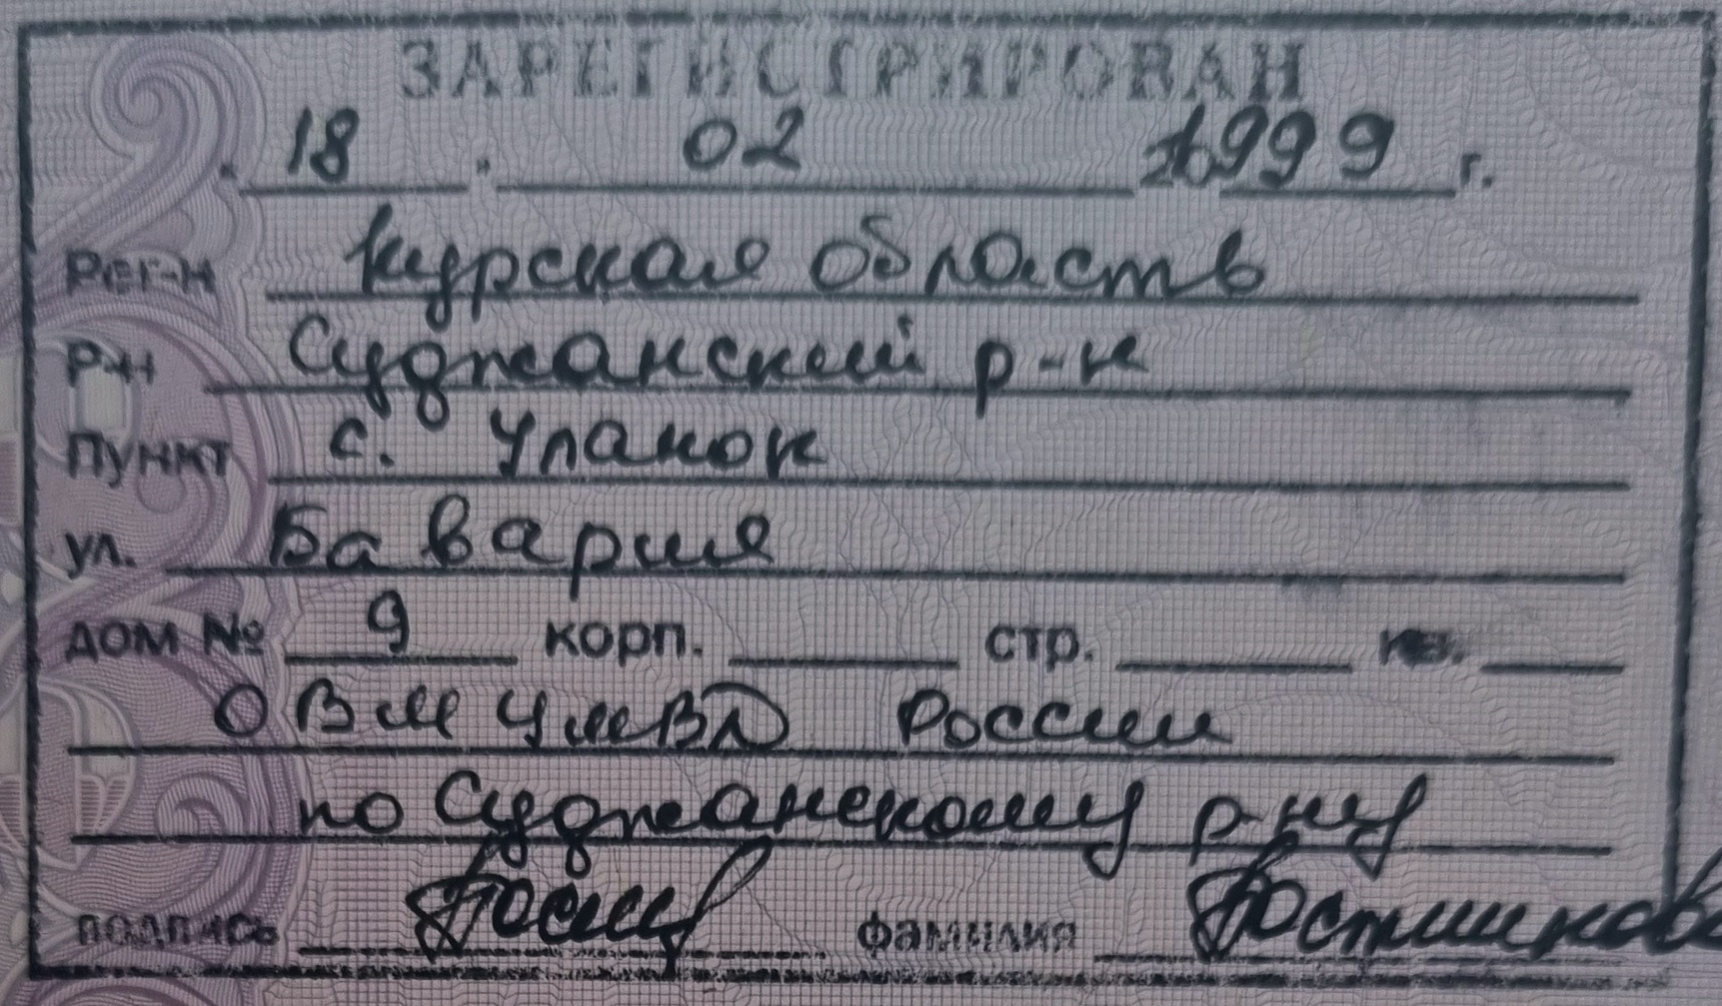 ЗАРЕГИСТРИРОВАН
18 . 02 1999 г.
Рег-н Курская область
Р-н Суджанский р-н
Пункт с. Уланок
ул. Бавария
дом № 9 корп. стр. кв.
ОВМ УМВД России
по Суджанскому р-ну
подпись фамилия